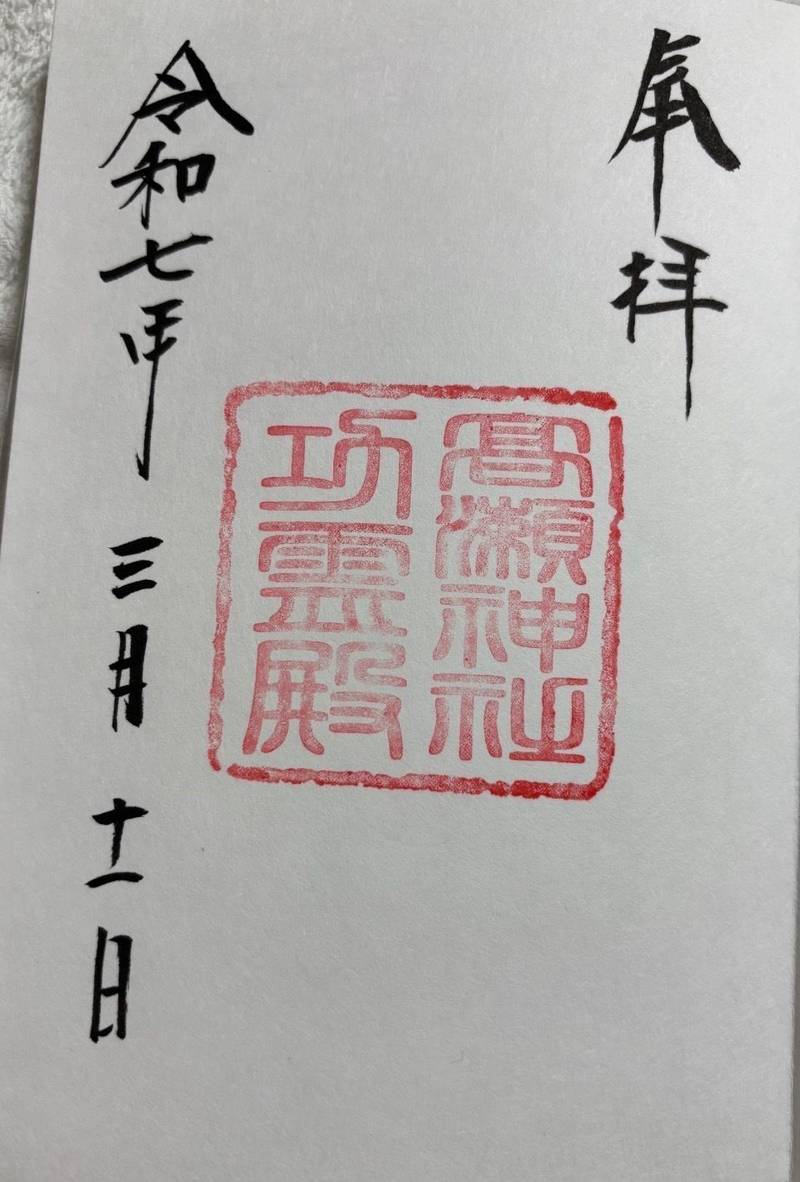 奉拝
髙瀬神社
功霊殿
令和七年 三月 十一日